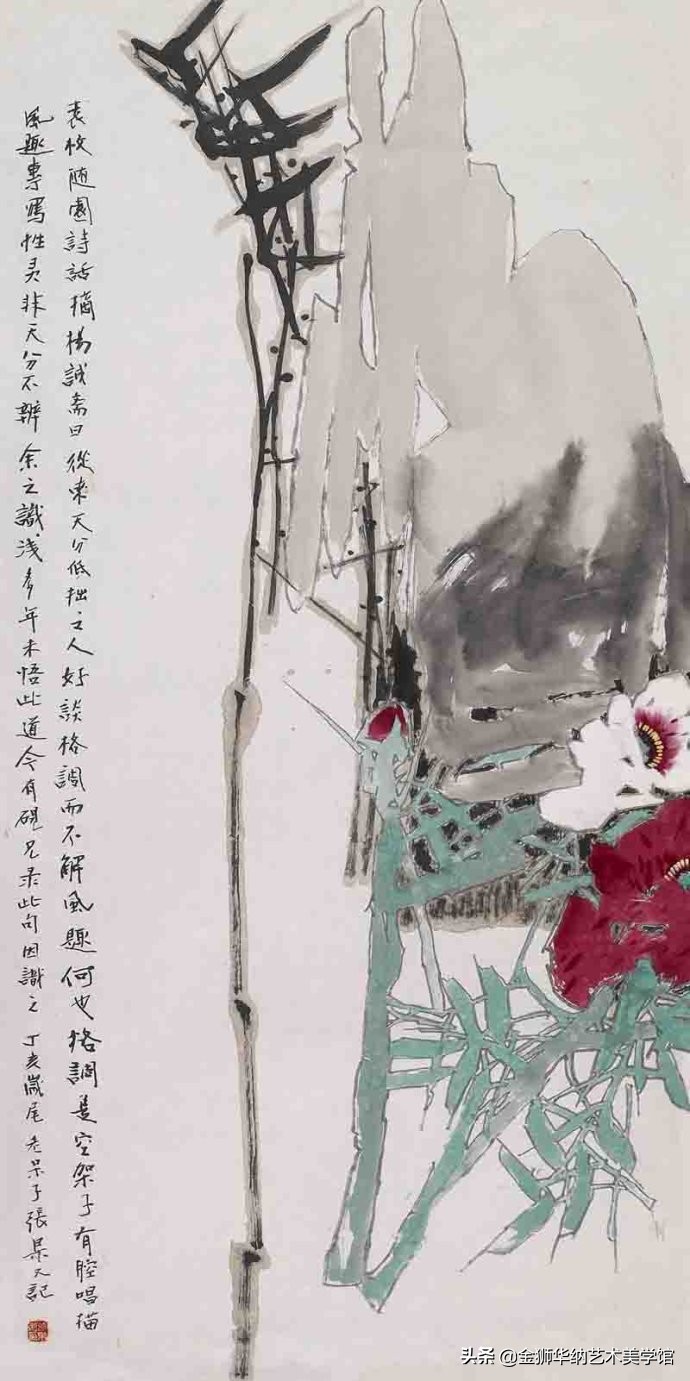 袁枚随園詩話摘楊誠斋曰從来天分低拙之人好談格調而不解風趣何也格調是空架子有腔唱描
風趣專寫性灵非天分不辨余之識浅多年未悟此道今有硯兄录此句因識之丁亥歲尾老呆子張杲又記
头条 @金狮华纳艺术美学馆